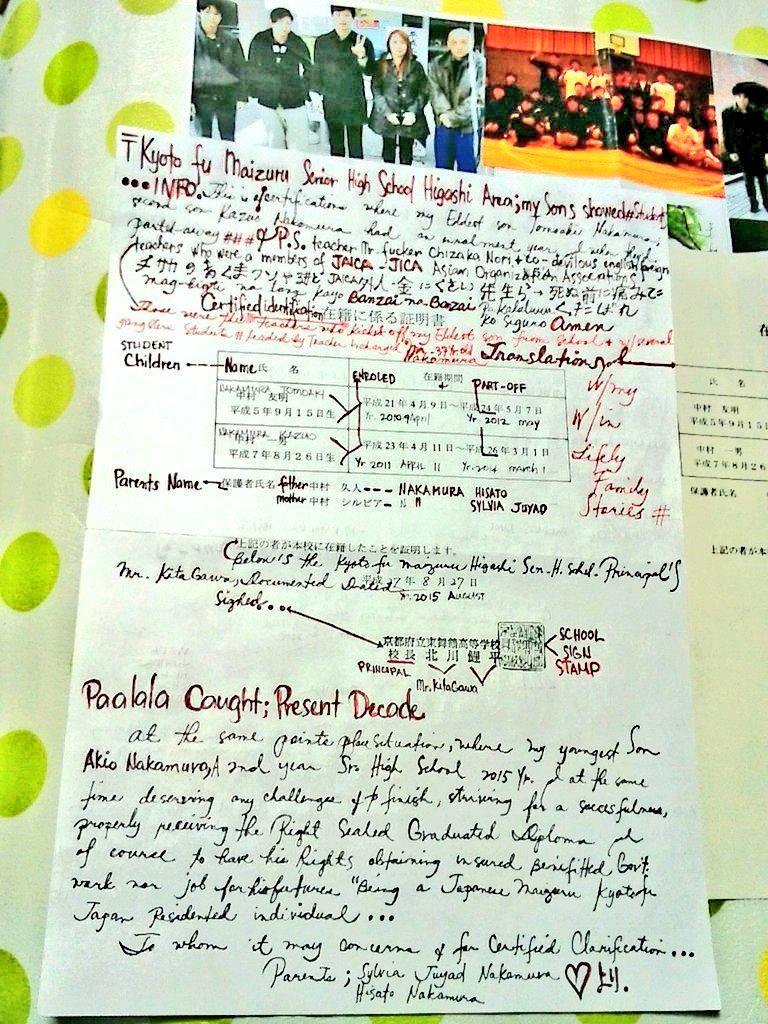 〒Kyoto fu Maizuru Senior High School Higashi Area; my Sons showed #Student
•••INFO. This is certifications where my Eldest son Tomoaki Nakamura,
second son Kazuo Nakamura had an enrolment year, when they
parted-away ### & P.S. teacher Mr. fucken Chizaka Nori + co-devilous english foreign
teachers who were a members of JAICA - JICA Asian Organization Associations
先生ら→死ぬ前に痛みで
mag-bigti na lang kayo Banzai na-Banzai Pakakaluluwa くたばれ
Certified identification 在籍に係る証明書 ko Siguro Amen
Those were the teachers who kickoff my Eldest son from School & w/several
gangsters Students # headed by Teacher Incharged Mr. 37yr.old Nakamura
Translation of
STUDENT
Children Name 氏 名 ENROLED 在籍期間 PART-OFF
NAKAMURA TOMOAKI
中村 友明 平成21年4月9日〜平成24年5月7日
平成5年9月15日生 Yr. 2010 9 April Yr. 2012 may
NAKAMURA KAZUO
中村 一男 平成23年4月11日〜平成26年3月1日
平成7年8月26日生 Yr 2011 APRIL 11 Yr. 2014 march 1
W/my
W/in
Lifely
Family
Stories #
Parents Name 保護者氏名 father 中村 久人 NAKAMURA HISATO
mother 中村 シルビア SYLVIA JUYAD
上記の者が本校に在籍したことを証明します。
Below IS the Kyoto fu maizuru Higashi Sen. H. Schol. Principal'S
Mr. KitaGawa, Documented Dated 平成27年8月27日
Yr. 2015 August
Signed...
京都府立東舞鶴高等学校
校長 北川 健平
PRINCIPAL
Mr. KitaGawa
SCHOOL
SIGN
STAMP
Paalala Caught; Present Decade
at the same points place situation, where my youngest Son
Akio Nakamura, A 2nd year Sr. High School 2015 Yr. & at the same
time deserving any challenges & to finish, striving for a successfulness,
properly receiving the Right Sealed Graduated Diploma and
of course to have his Rights obtaining insured Benifitted Gov't.
work nor job for his futures "Being a Japanese Maizuru Kyoto fu
Japan Residented individual...
To whom it may concerns & for Certified Clarification...
Parents; Sylvia Juyad Nakamura ♡より.
Hisato Nakamura
氏 名
中村 友明
平成5年9月15
中村 一男
平成7年8月26
保護者氏名
上記の者が